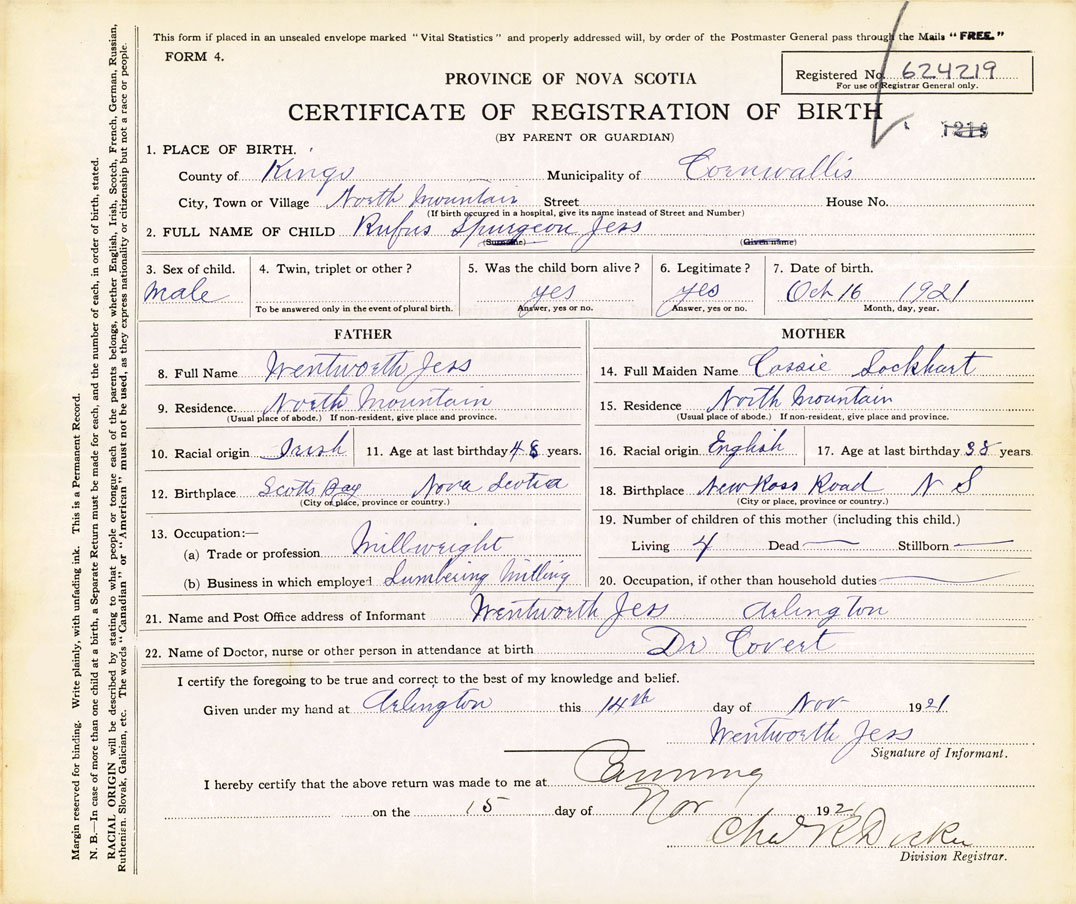 This form if placed in an unsealed envelope marked "Vital Statistics" and properly addressed will, by order of the Postmaster General pass through the Mails "FREE."
FORM 4.
PROVINCE OF NOVA SCOTIA
Registered No. 624219
For use of Registrar General only.
CERTIFICATE OF REGISTRATION OF BIRTH
(BY PARENT OR GUARDIAN)
1. PLACE OF BIRTH.
County of Kings Municipality of Cornwallis
City, Town or Village North Mountain Street House No.
(If birth occurred in a hospital, give its name instead of Street and Number)
2. FULL NAME OF CHILD Rufus Spurgeon Jess
(Surname) (Given name)
3. Sex of child. 4. Twin, triplet or other? 5. Was the child born alive? 6. Legitimate? 7. Date of birth.
male yes yes Oct 16 1921
To be answered only in the event of plural birth. Answer, yes or no. Answer, yes or no. Month, day, year.
FATHER MOTHER
8. Full Name Wentworth Jess 14. Full Maiden Name Cassie Lockhart
9. Residence. North Mountain 15. Residence North Mountain
(Usual place of abode.) If non-resident, give place and province. (Usual place of abode.) If non-resident, give place and province.
10. Racial origin Irish 11. Age at last birthday 48 years. 16. Racial origin English 17. Age at last birthday 38 years
12. Birthplace Scotts Bay Nova Scotia 18. Birthplace New Ross Road N S
(City or place, province or country.) (City or place, province or country.)
13. Occupation:— 19. Number of children of this mother (including this child.)
(a) Trade or profession Millwright Living 4 Dead — Stillborn —
(b) Business in which employed Lumbering Milling 20. Occupation, if other than household duties —
21. Name and Post Office address of Informant Wentworth Jess Arlington
22. Name of Doctor, nurse or other person in attendance at birth Dr Covert
I certify the foregoing to be true and correct to the best of my knowledge and belief.
Given under my hand at Arlington this 14th day of Nov 1921
Wentworth Jess
Signature of Informant.
I hereby certify that the above return was made to me at Canning
on the 15 day of Nov 1921
Division Registrar.
Margin reserved for binding. Write plainly, with unfading ink. This is a Permanent Record.
N. B.—In case of more than one child at a birth, a Separate Return must be made for each, and the number of each, in order of birth, stated.
RACIAL ORIGIN will be described by stating to what people or tongue each of the parents belongs, whether English, Irish, Scotch, French, German, Russian,
Ruthenian, Slovak, Galician, etc. The words "Canadian" or "American" must not be used, as they express nationality or citizenship but not a race or people.